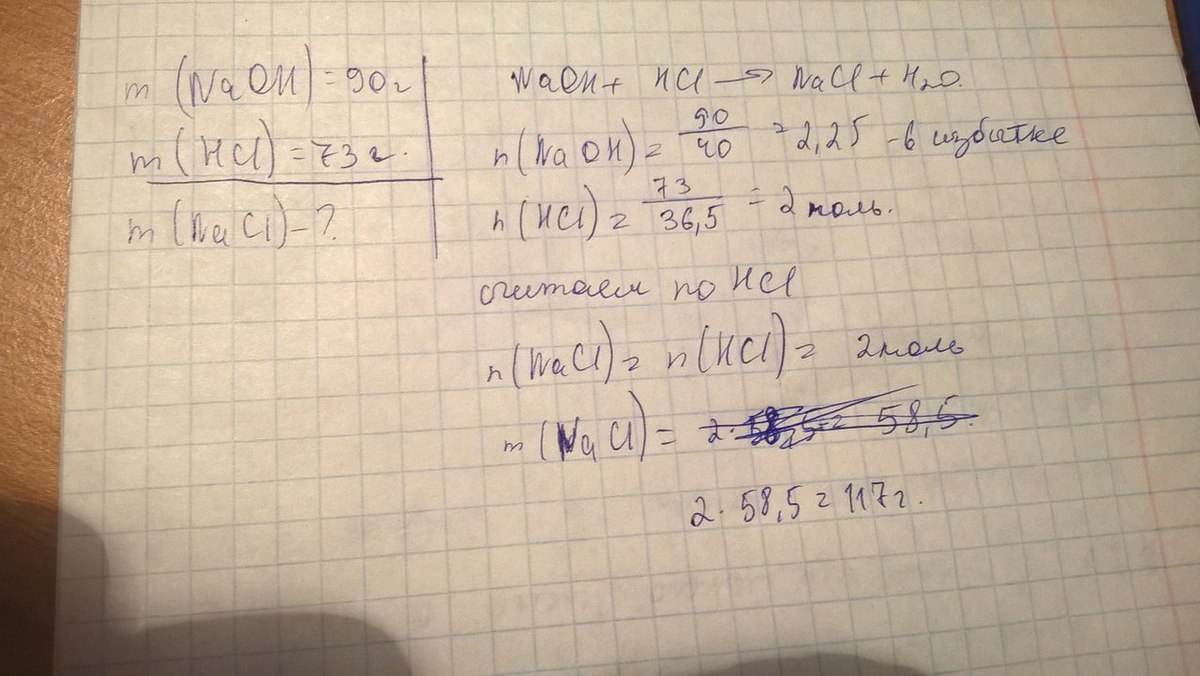 m (NaOH) = 90 г
m (HCl) = 73 г.
m (NaCl) - ?
NaOH + HCl → NaCl + H₂O.
n (NaOH) = 90/40 = 2,25 - в избытке
n (HCl) = 73/36,5 = 2 моль.
считаем по HCl
n (NaCl) = n (HCl) = 2 моль
m (NaCl) =
2 · 58,5 = 117 г.